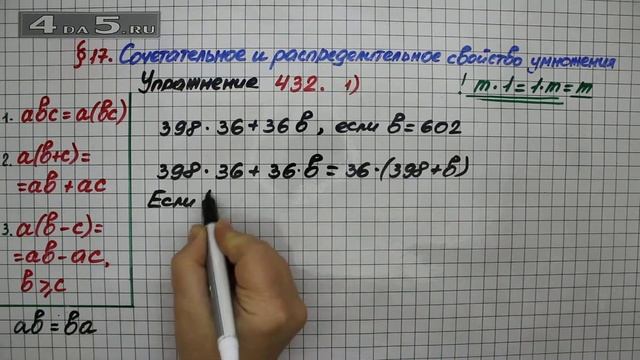 4DA5.RU
§ 17. Сочетательное и распределительное свойство умножения
Упражнение 432. 1)
! m · 1 = 1 · m = m
1. abc = a(bc)
2. a(b+c) =
= ab + ac
3. a(b-c) =
= ab - ac,
b ⩾ c
ab = ba
398 · 36 + 36b, если b = 602
398 · 36 + 36 · b = 36 · (398 + b)
Если